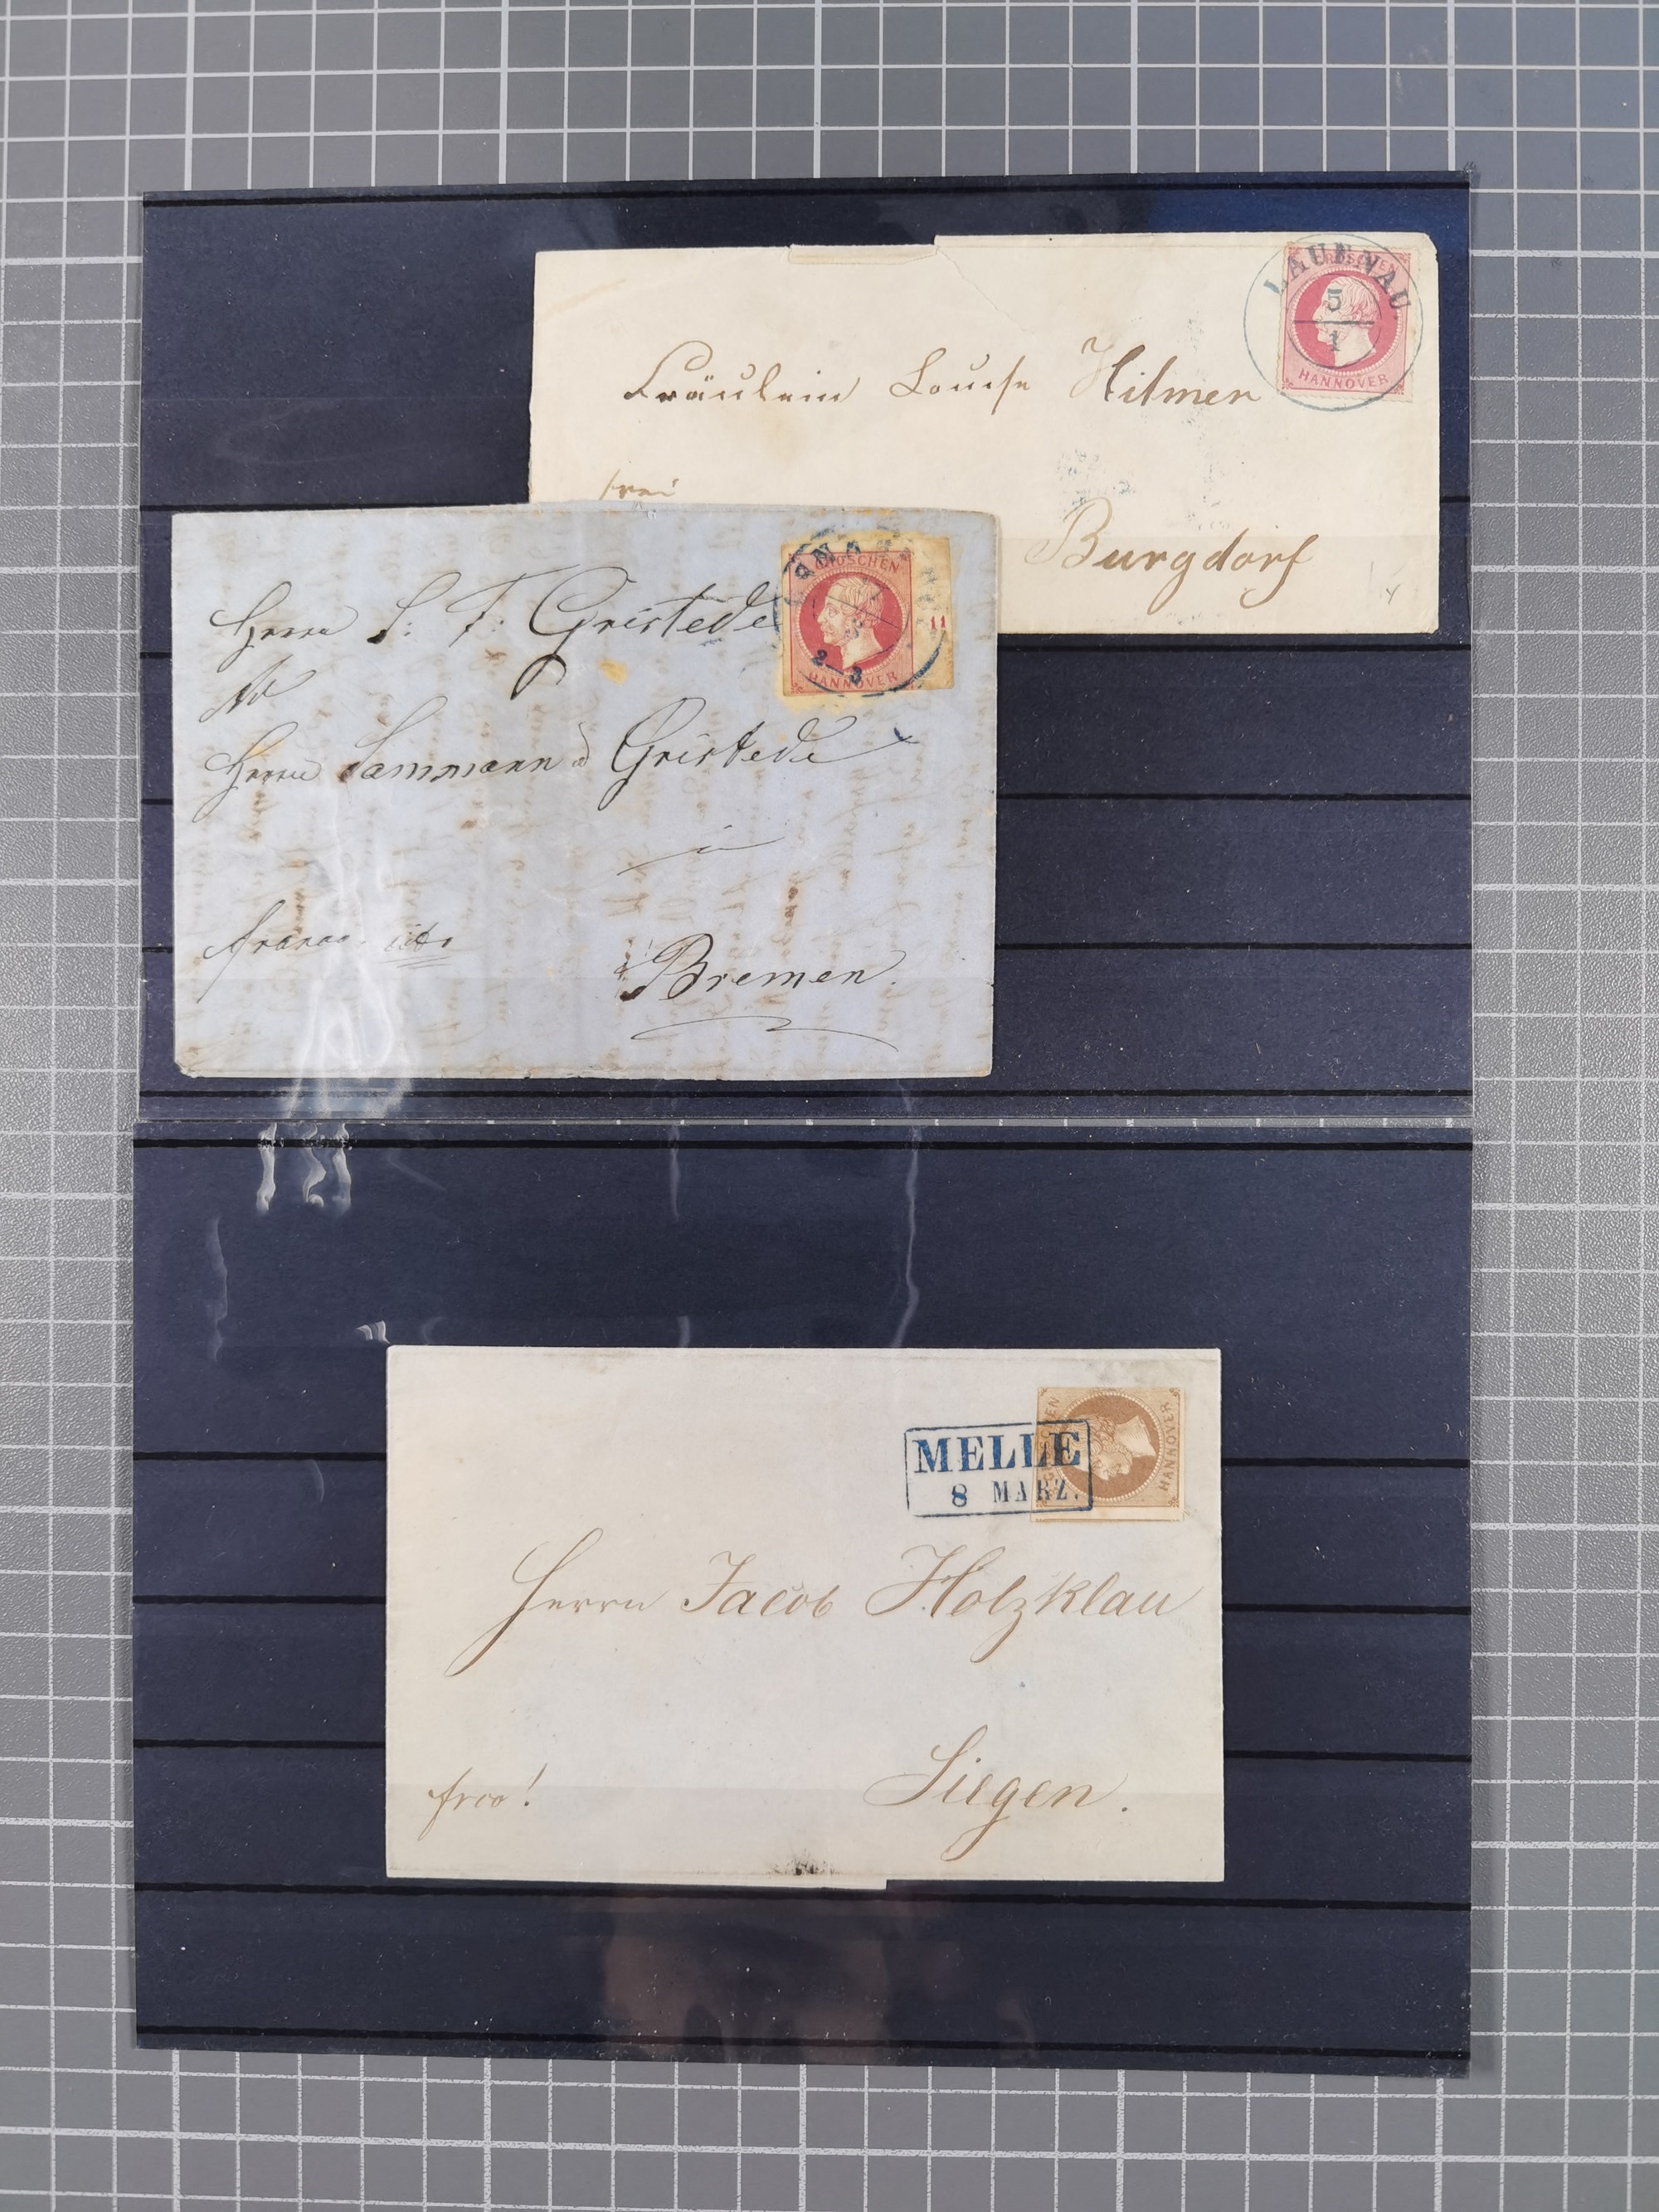 LAUENAU.
5
1
GROSCHEN
HANNOVER
Fräulein Louise Hilmer
frei
Burgdorf
GROSCHEN
HANNOVER
2-3
11
Herrn J. F. Gristede
Herrn Lammann & Gristede
in
franco
Bremen.
GROSCHEN
HANNOVER
MELLE
8 MÄRZ.
Herrn Jacob Holzklau
Siegen.
frco!